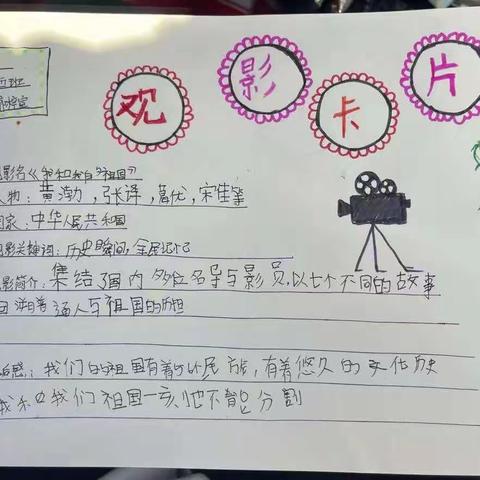 观影卡片
班
电影名《我和我的祖国》
人物：黄渤，张译，葛优，宋佳等
国家：中华人民共和国
电影关键词：历史瞬间，全民记忆
电影简介：集结了国内多位名导与影员，以七个不同的故事
普通人与祖国的
感：我们的祖国有着 民族，有着悠久的文化历史
我和我们祖国一刻也不能分割